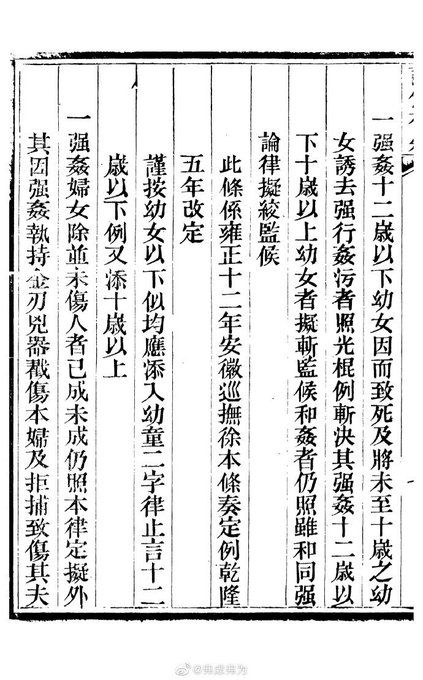 一强姦十二歲以下幼女因而致死及將未至十歲之幼
女誘去强行姦污者照光棍例斬決其强姦十二歲以
下十歲以上幼女者擬斬監候和姦者仍照雖和同强
論律擬絞監候
此條係雍正十二年安徽巡撫徐本條奏定例乾隆
五年改定
謹按幼女以下似均應添入幼童二字律止言十二
歲以下例又添十歲以上
一强姦婦女除並未傷人者已成未成仍照本律定擬外
其因强姦執持金刃兇器戳傷本婦及拒捕致傷其夫
@弗虑弗为